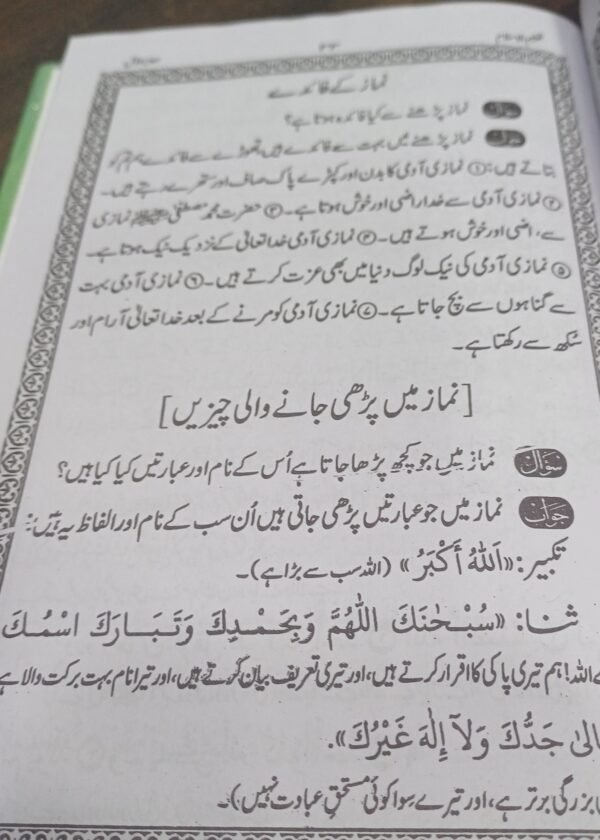 ۲۳
نماز کے فائدے
سوال نماز پڑھنے سے کیا فائدہ ہوتا ہے؟
جواب نماز پڑھنے میں بہت سے فائدے ہیں تھوڑے سے فائدے ہم تم کو
بتاتے ہیں: ① نمازی آدمی کا بدن اور کپڑے پاک صاف اور ستھرے رہتے ہیں۔
② نمازی آدمی سے خدا راضی اور خوش ہوتا ہے۔ ③ حضرت محمد مصطفیٰ ﷺ نمازی
سے راضی اور خوش ہوتے ہیں۔ ④ نمازی آدمی خدا تعالیٰ کے نزدیک نیک ہوتا ہے۔
⑤ نمازی آدمی کی نیک لوگ دنیا میں بھی عزت کرتے ہیں۔ ⑥ نمازی آدمی بہت
سے گناہوں سے بچ جاتا ہے۔ ⑦ نمازی آدمی کو مرنے کے بعد خدا تعالیٰ آرام اور
سُکھ سے رکھتا ہے۔
[نماز میں پڑھی جانے والی چیزیں]
سوال نماز میں جو کچھ پڑھا جاتا ہے اُس کے نام اور عبارتیں کیا کیا ہیں؟
جواب نماز میں جو عبارتیں پڑھی جاتی ہیں اُن سب کے نام اور الفاظ یہ ہیں:
تکبیر: «اَللهُ أَكْبَرُ» (اللہ سب سے بڑا ہے)۔
ثنا: «سُبْحٰنَكَ اللّٰهُمَّ وَبِحَمْدِكَ وَتَبَارَكَ اسْمُكَ
اللہ! ہم تیری پاکی کا اقرار کرتے ہیں، اور تیری تعریف بیان کرتے ہیں، اور تیرا نام بہت برکت والا ہے
جَدُّكَ وَلَآ إِلٰهَ غَيْرُكَ».
بزرگی برتر ہے، اور تیرے سوا کوئی مستحقِ عبادت نہیں)۔